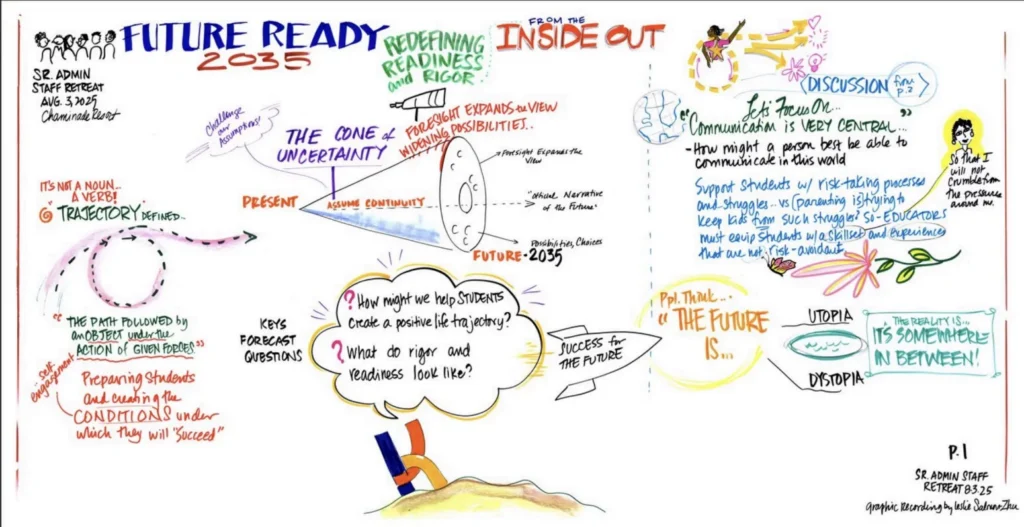 FUTURE READY
2035
REDEFINING
READINESS
and RIGOR
FROM THE
INSIDE OUT
SR. ADMIN
STAFF RETREAT
AUG. 3, 2025
Chaminade Resort
Challenge
our
Assumptions!
THE CONE of
UNCERTAINTY
FORESIGHT EXPANDS the VIEW
WIDENING POSSIBILITIES..
PRESENT
ASSUME CONTINUITY
Foresight Expands the
View
"Official Narrative
of the Future"
Possibilities, Choices
FUTURE-2035
IT'S NOT A NOUN...
A VERB!
@ "TRAJECTORY" DEFINED...
"THE PATH FOLLOWED by
an OBJECT under the
ACTION OF GIVEN FORCES"
"Self-
engagement"
Preparing Students
and creating the
CONDITIONS under
which they will "Succeed"
KEYS
FORECAST
QUESTIONS
? How might we help STUDENTS
Create a positive life trajectory?
? What do rigor and
readiness look like?
SUCCESS for
THE FUTURE
DISCUSSION
from
p.2
Let's Focus On...
"Communication is VERY CENTRAL..."
- How might a person best be able to
communicate in this world
Support Students w/ risk-taking processes
and struggles... vs (parenting is) trying to
keep kids from such struggles? So-EDUCATORS
must equip Students w/a skillset and experiences
that are not risk-avoidant
So that I
will not
crumble from
the presence
around me.
Ppl. Think...
"THE FUTURE
IS...
UTOPIA
DYSTOPIA
THE REALITY IS...
IT'S SOMEWHERE
IN BETWEEN!
P.1
SR. ADMIN STAFF
RETREAT 8.3.25
Graphic Recording by Leslie